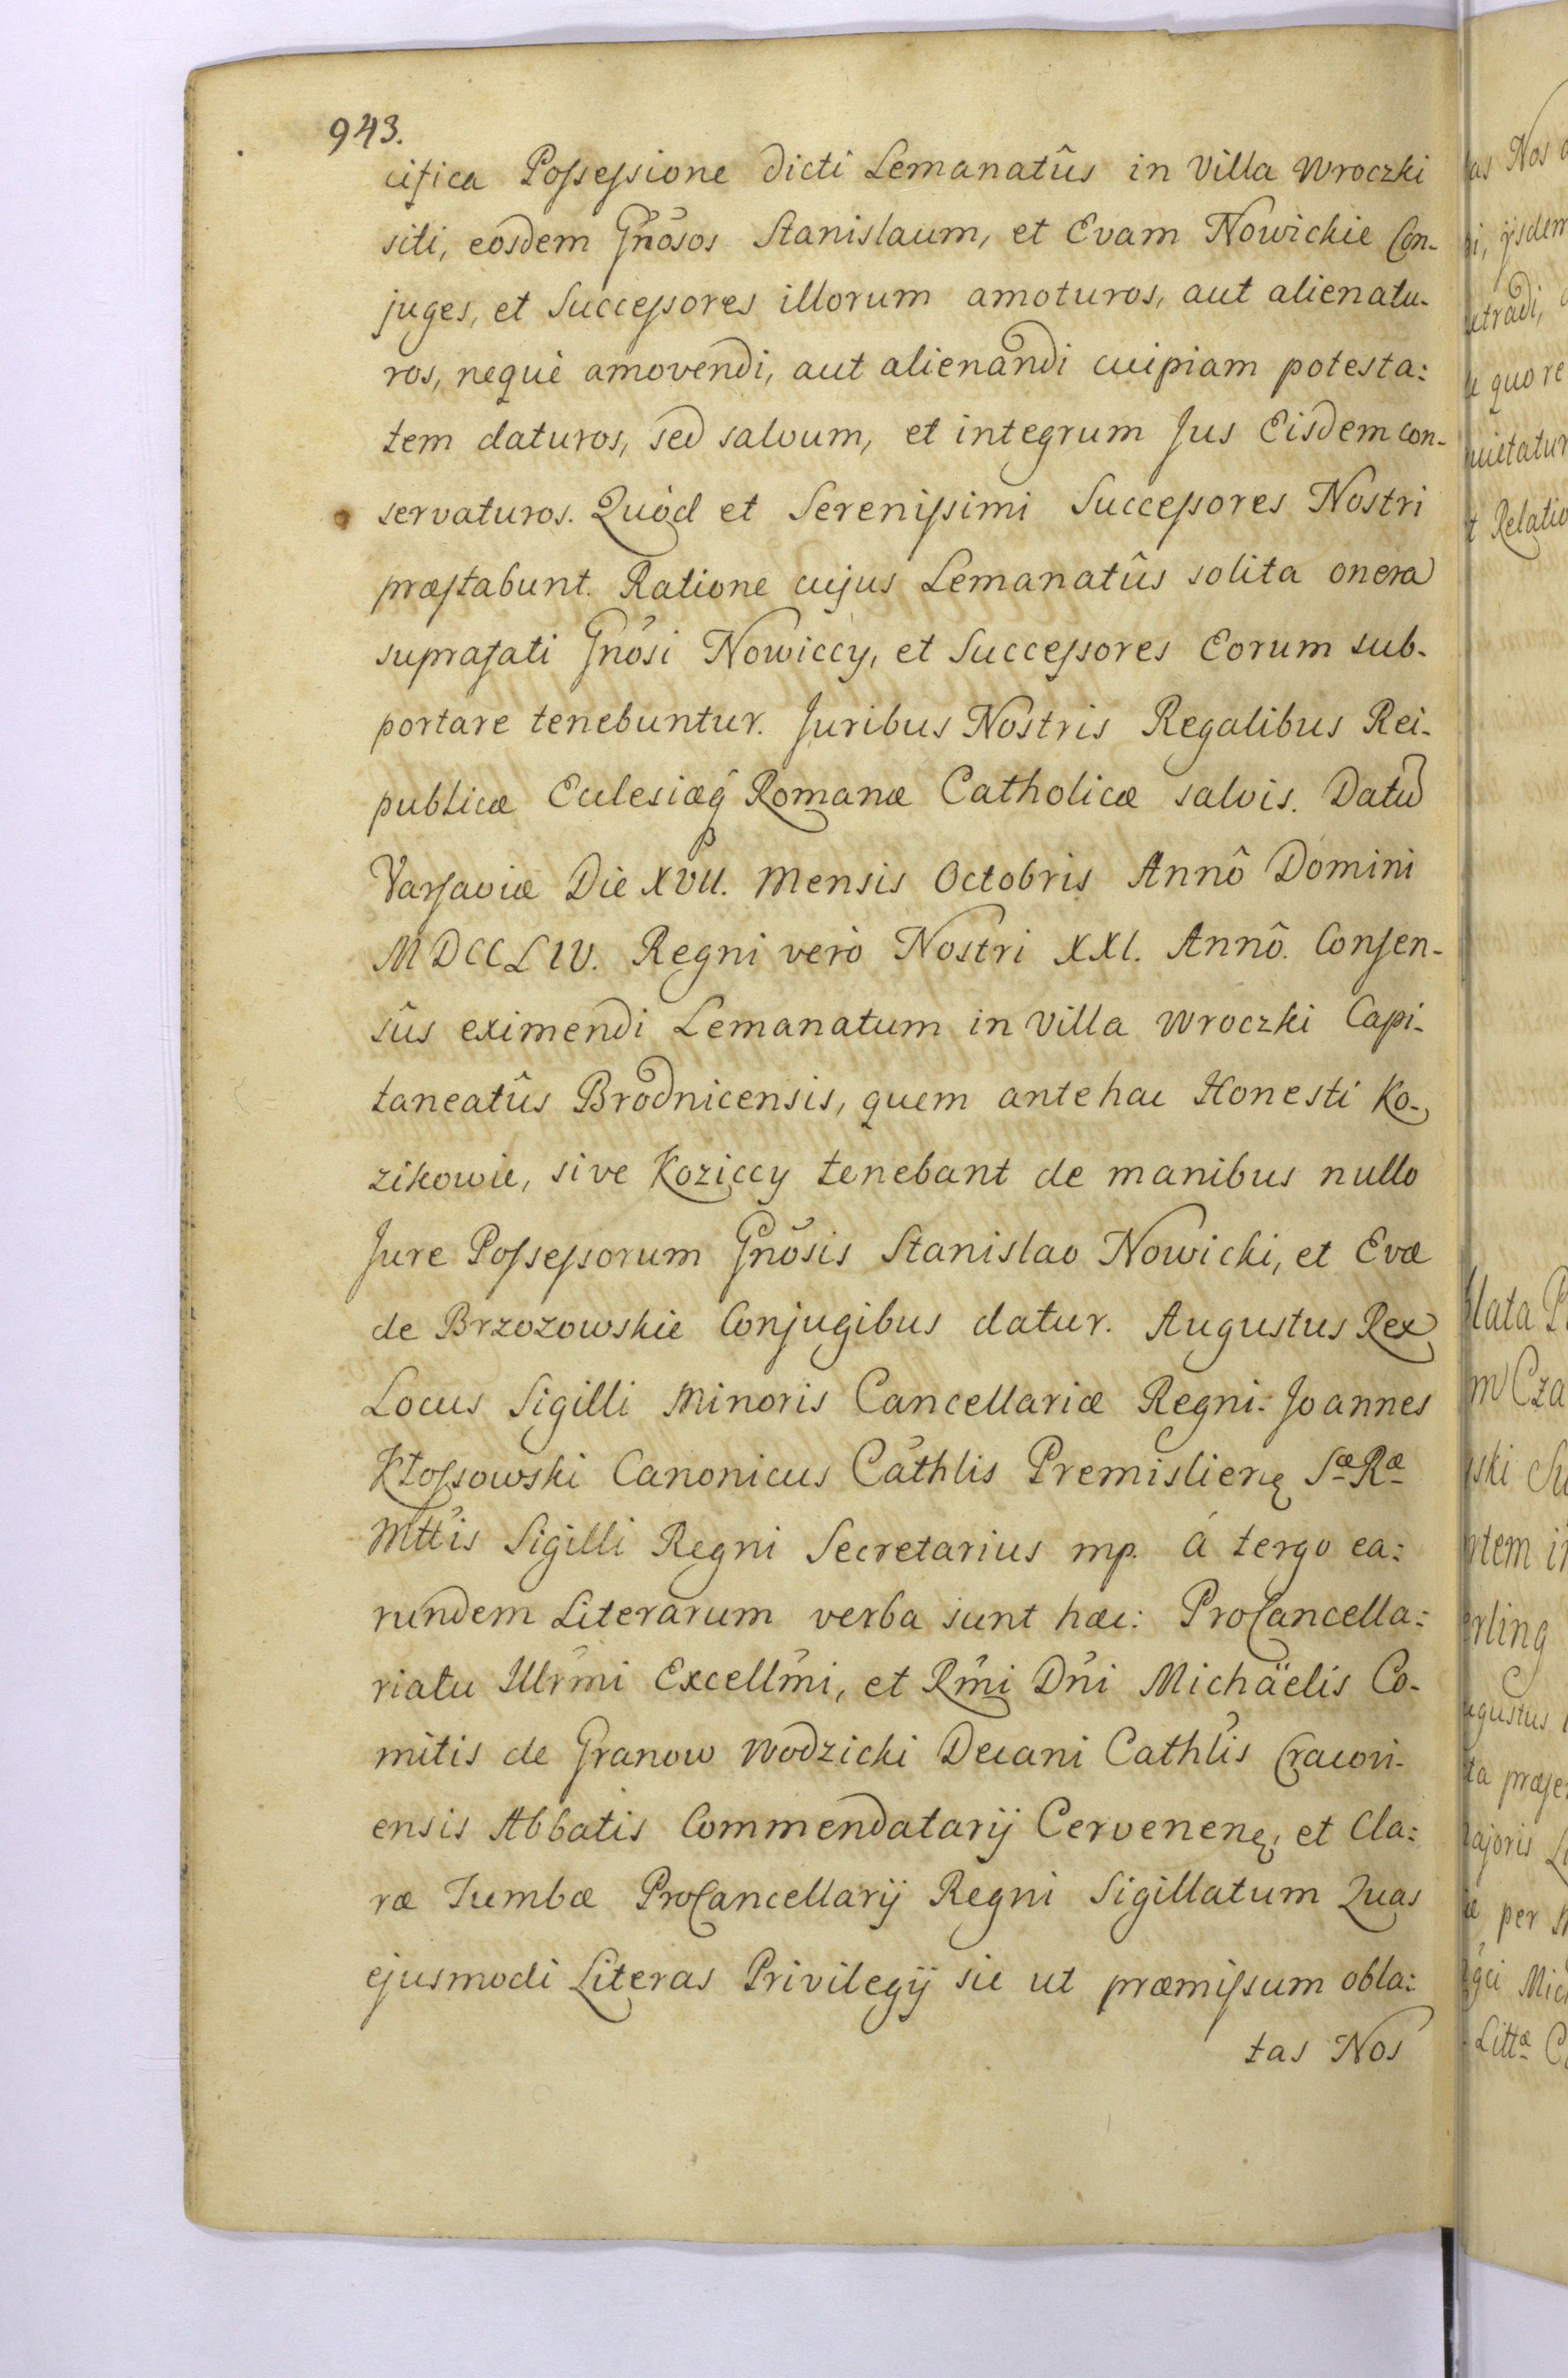 943.
cifica Possessione dicti Lemanatûs in Villa Wroczki
siti, eosdem Gnõsos Stanislaum, et Evam Nowickie Con-
juges, et Successores illorum amoturos, aut alienatu-
ros, nequè amovendi, aut alienandi cuipiam potesta:
tem daturos, sed salvum, et integrum Jus Eisdem con-
servaturos. Quòd et Serenissimi Successores Nostri
præstabunt. Ratione cujus Lemanatûs solita onera
suprafati Gnõsi Nowiccy, et Successores Eorum sub-
portare tenebuntur. Juribus Nostris Regalibus Rei-
publicæ Ecclesiæq́ Romanæ Catholicæ salvis. Datũ
Varsaviæ Die XVII. Mensis Octobris Annô Domini
MDCCLIV. Regni verò Nostri XXI. Annô. Consen-
sûs eximendi Lemanatum in Villa Wroczki Capi-
taneatûs Brodnicensis, quem antehac Honesti Ko-
zikowie, sive Koziccy tenebant de manibus nullo
Jure Possessorum Gnõsis Stanislao Nowicki, et Evæ
de Brzozowskie Conjugibus datur. Augustus Rex
Locus Sigilli Minoris Cancellariæ Regni: Joannes
Kłossowski Canonicus Cathlis Premislienę Sæ Ræ
Mttis Sigilli Regni Secretarius mp. á tergo ea:
rundem Literarum verba sunt hæc: ProCancella:
riatu Illrmi Excellmi, et Rmi Dni Michäelis Co-
mitis de Granow Wodzicki Decani Cathlis Cracovi-
ensis Abbatis Commendatarij Cervenenę, et Cla:
ræ Tumbæ ProCancellarij Regni Sigillatum Quas
ejusmodi Literas Privilegij sic ut præmissum obla:
tas Nos